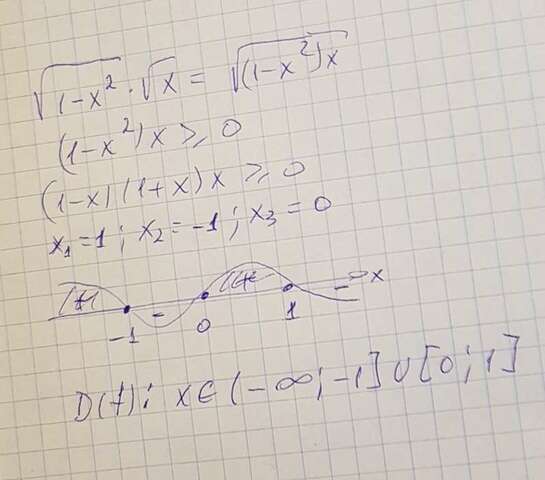 √(1-x²) · √x = √((1-x²)x)
(1-x²)x ⩾ 0
(1-x)(1+x)x ⩾ 0
x₁=1; x₂=-1; x₃=0
(+) - (+) - x
-1 0 1
D(f): x∈(-∞;-1]∪[0;1]